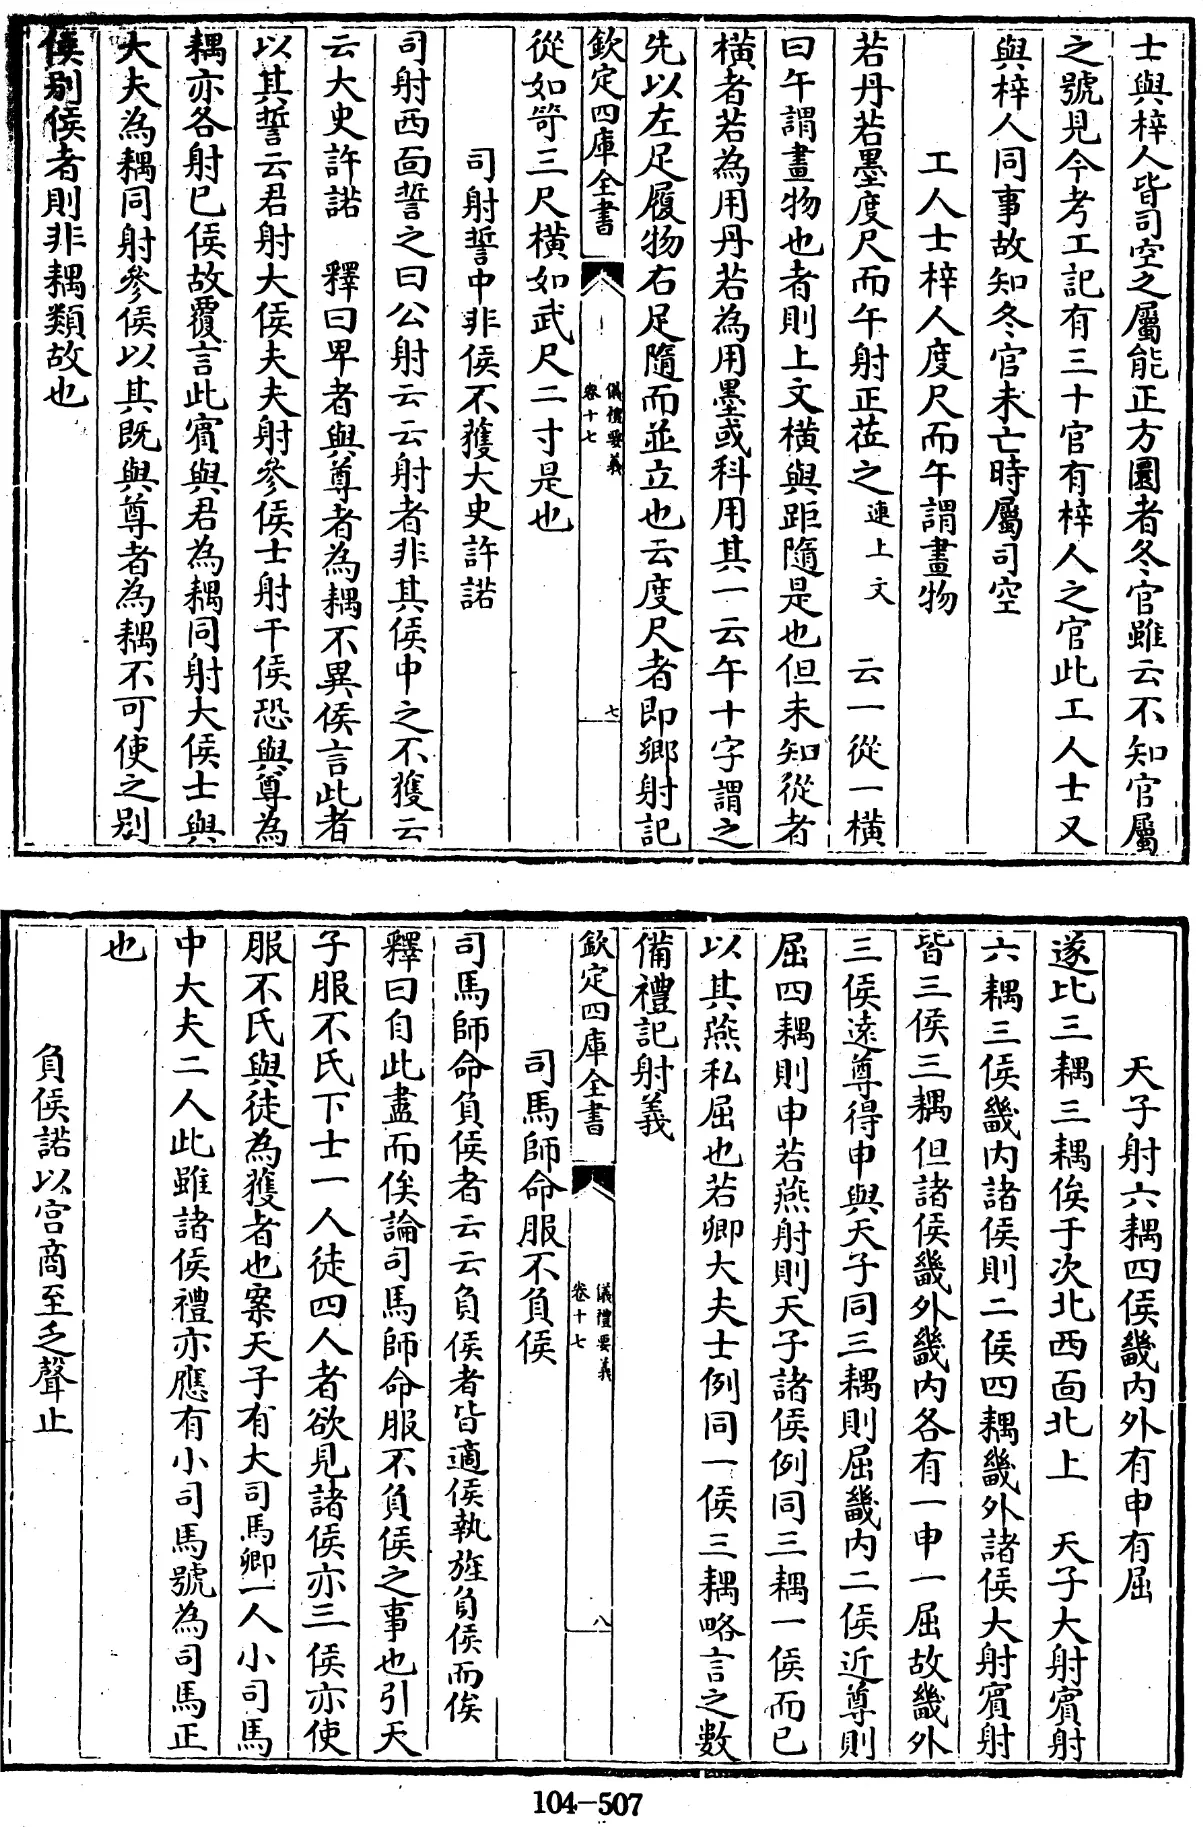 士與梓人皆司空之屬能正方圜者冬官雖云不知官屬
之號見今考工記有三十官有梓人之官此工人士又
與梓人同事故知冬官未亡時屬司空
工人士梓人度尺而午謂畫物
若丹若墨度尺而午射正莅之連上文　云一從一橫
曰午謂畫物也者則上文橫與距隨是也但未知從者
橫者若為用丹若為用墨或科用其一云午十字謂之
先以左足履物右足隨而並立也云度尺者即鄉射記
欽定四庫全書
儀禮要義
卷十七
七
從如笴三尺橫如武尺二寸是也
司射誓中非侯不獲大史許諾
司射西面誓之曰公射云云射者非其侯中之不獲云
云大史許諾　釋曰卑者與尊者為耦不異侯言此者
以其誓云君射大侯大夫射參侯士射干侯恐與尊為
耦亦各射已侯故覆言此賓與君為耦同射大侯士與
大夫為耦同射參侯以其既與尊者為耦不可使之別
侯別侯者則非耦類故也
天子射六耦四侯畿內外有申有屈
遂比三耦三耦俟于次北西面北上　天子大射賓射
六耦三侯畿內諸侯則二侯四耦畿外諸侯大射賓射
皆三侯三耦但諸侯畿外畿內各有一申一屈故畿外
三侯遠尊得申與天子同三耦則屈畿內二侯近尊則
屈四耦則申若燕射則天子諸侯例同三耦一侯而已
以其燕私屈也若卿大夫士例同一侯三耦略言之數
備禮記射義
欽定四庫全書
儀禮要義
卷十七
八
司馬師命服不負侯
司馬師命負侯者云云負侯者皆適侯執旌負侯而俟
釋曰自此盡而俟論司馬師命服不負侯之事也引天
子服不氏下士一人徒四人者欲見諸侯亦三侯亦使
服不氏與徒為獲者也案天子有大司馬卿一人小司馬
中大夫二人此雖諸侯禮亦應有小司馬號為司馬正
也
負侯諾以宮商至乏聲止
104-507